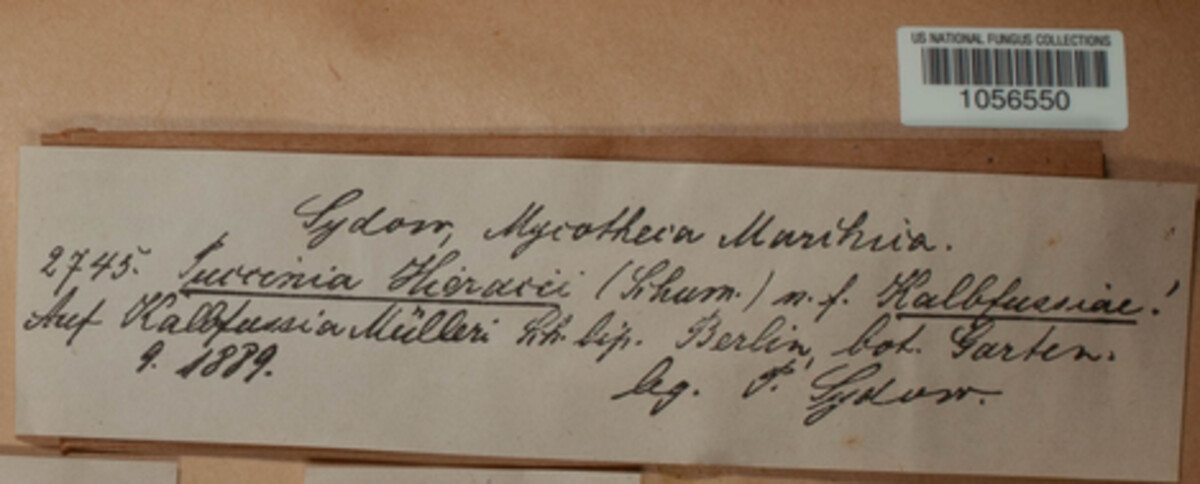 US NATIONAL FUNGUS COLLECTIONS
1056550
Sydow, Mycotheca Marchica.
2745. Puccinia Hieracii (Schum.) n. f. Kalbfussiae!
Auf Kalbfussia Mülleri Sch. bip. Berlin, bot. Garten.
9. 1889. leg. P. Sydow.